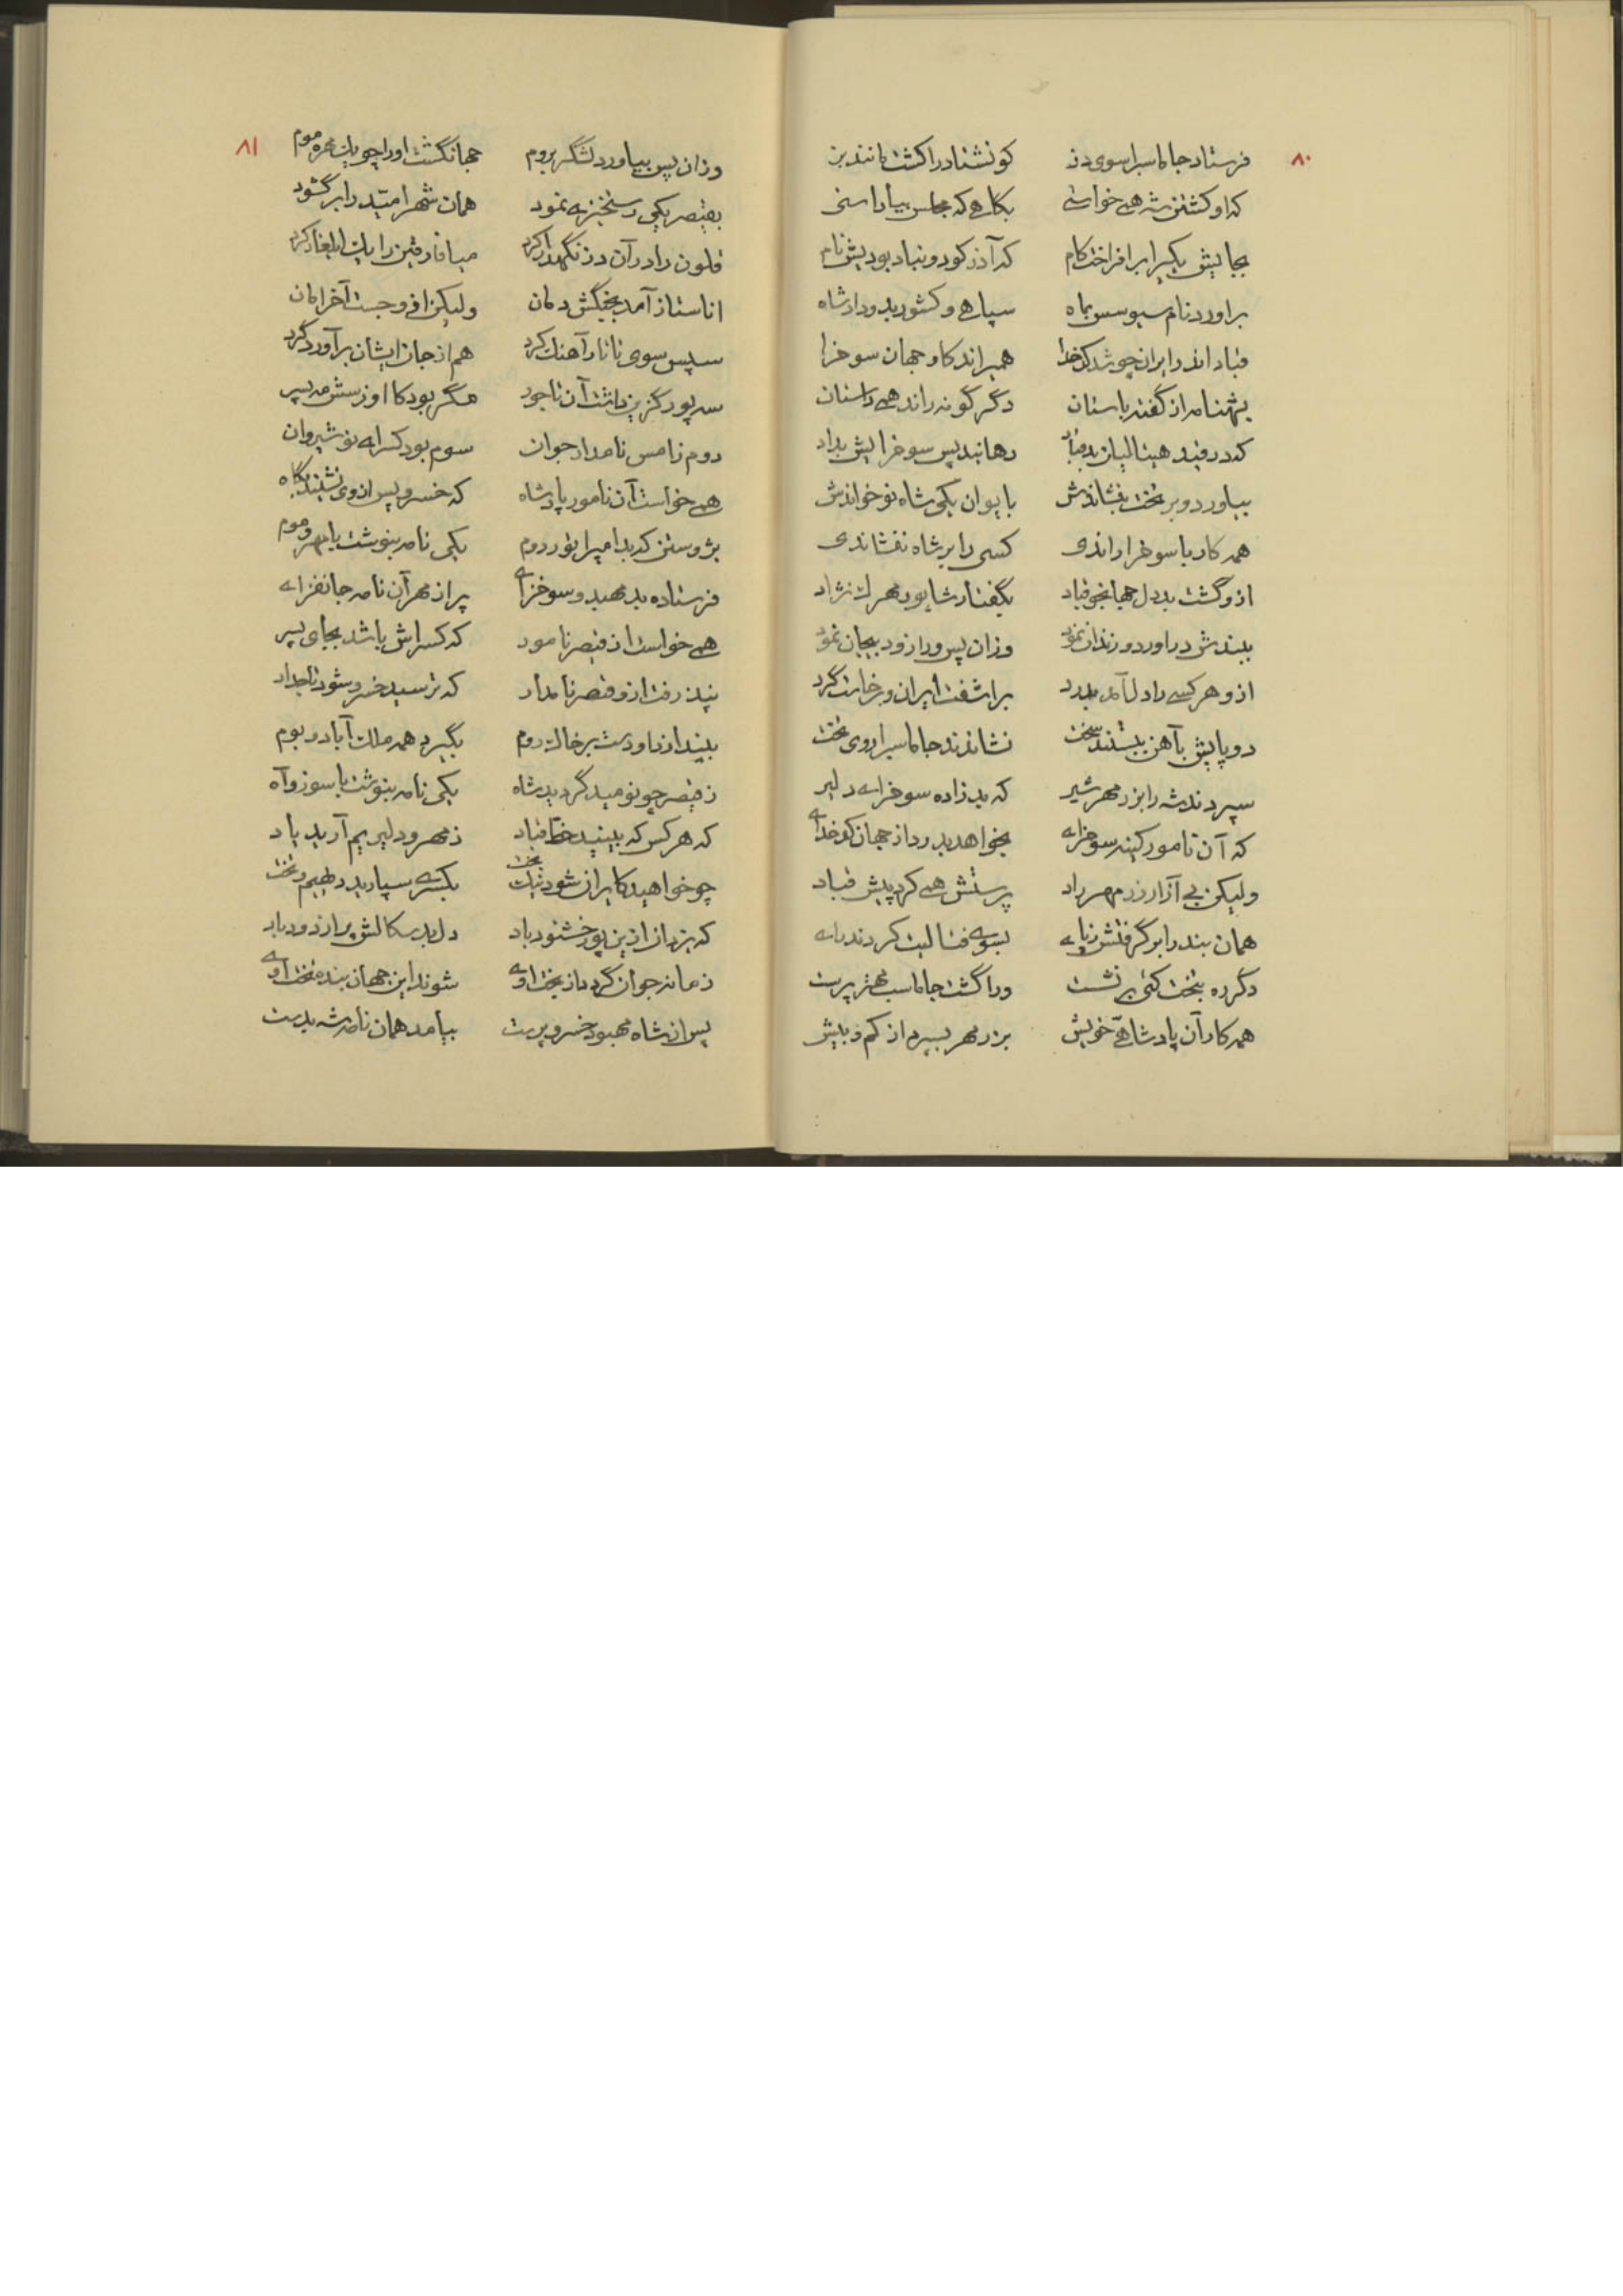 ۸۰
فرستاد جاماسبرا سوی دز کونشناد را کشت مانند بز
که او کشتن شه همی خواستی بگاهی که مجلس بیاراستی
بجایش یکیرا برافراخت کام که آذرکودونباد بودیش نام
براورد نام سیوسس بماه سپاهی و کشور بدو داد شاه
قباد اندر ایران چو شد کدخدا همیراند کار جهان سوخرا
بشهنامه از گفته باستان دگرگونه راند همی داستان
که در قید هیتالیان بد قباد رهانید پس سوخرایش بداد
بیاورد و بر تخت بنشاندش بایوان یکی شاه نو خواندش
همه کار با سوخرا راندی کسی را بر شاه ننشاندی
ازو گشت بددل جهانجو قباد بگفتار شاپور مهرک نژاد
ببندش دراورد و زندان نمود وزان پس ورا زود بیجان نمود
ازو هر کسی را دل آمد بدرد براشفت ایران و برخاست گرد
دو پایش بآهن ببستند سخت نشاندند جاماسبرا روی تخت
سپردند شه را بزرمهر شیر که بد زاده سوخرای دلیر
که آن نامور کینه سوخرای بخواهد بدرد از جهان کدخدای
ولیکن بی آزار زرمهر راد پرستش همی کرد پیش قباد
همان بند را برگرفتش ز پای بسوی هتالیت کردند رای
دگرره بتخت کئی برنشست ورا گشت جاماسب مهتر پرست
همه کار آن پادشاهی خویش بزرمهر بسپرد از کم و بیش
۸۱
وزان پس بیاورد لشگر بروم جهان گشت او را چو یک مهره موم
بقیصر یکی رستخیزی نمود همان شهر امتید را برگشود
قلون را در آن دز نگهدار کرد میافارقین را یک ایلغار کرد
اناستاز آمد بجنگش دمان ولیکن ازو جست آخر امان
سپس سوی تاتار آهنگ کرد هم از جان ایشان برآورد گرد
سه پور گزین داشت آن تاجور مگر بود کااوزسش مه پسر
دوم زامس نامدار جوان سوم بود کسرای نوشیروان
همی خواست آن نامور پادشاه که خسرو پس از وی نشیند بگاه
بژوستن که بد امپراتور روم یکی نامه بنوشت با مهر و موم
فرستاده بد مهبد و سوخرای پر از مهر آن نامه جانفزای
همی خواست از قیصر نامور که کسراش باشد بجای پسر
نپذرفت ازو قیصر نامدار که ترسید خسرو شود تاجدار
بیندازد او دست بر خاک روم بگیرد همه ملک آباد و بوم
ز قیصر چو نومید گردید شاه یکی نامه بنوشت با سوز و آه
که هر کس که بیند خط قباد ز مهر و دلیریم آرید یاد
چو خواهید کایران شود نیک بخت بکسری سپارید دیهیم و تخت
که یزدان ازین پور خشنود باد دل بدسگالش پر از دود باد
زمانه جوان گردد از بخت اوی شوند این جهان بنده تخت اوی
پس از شاه مهبود خسرو پرست بیامد همان نامه شه بدست